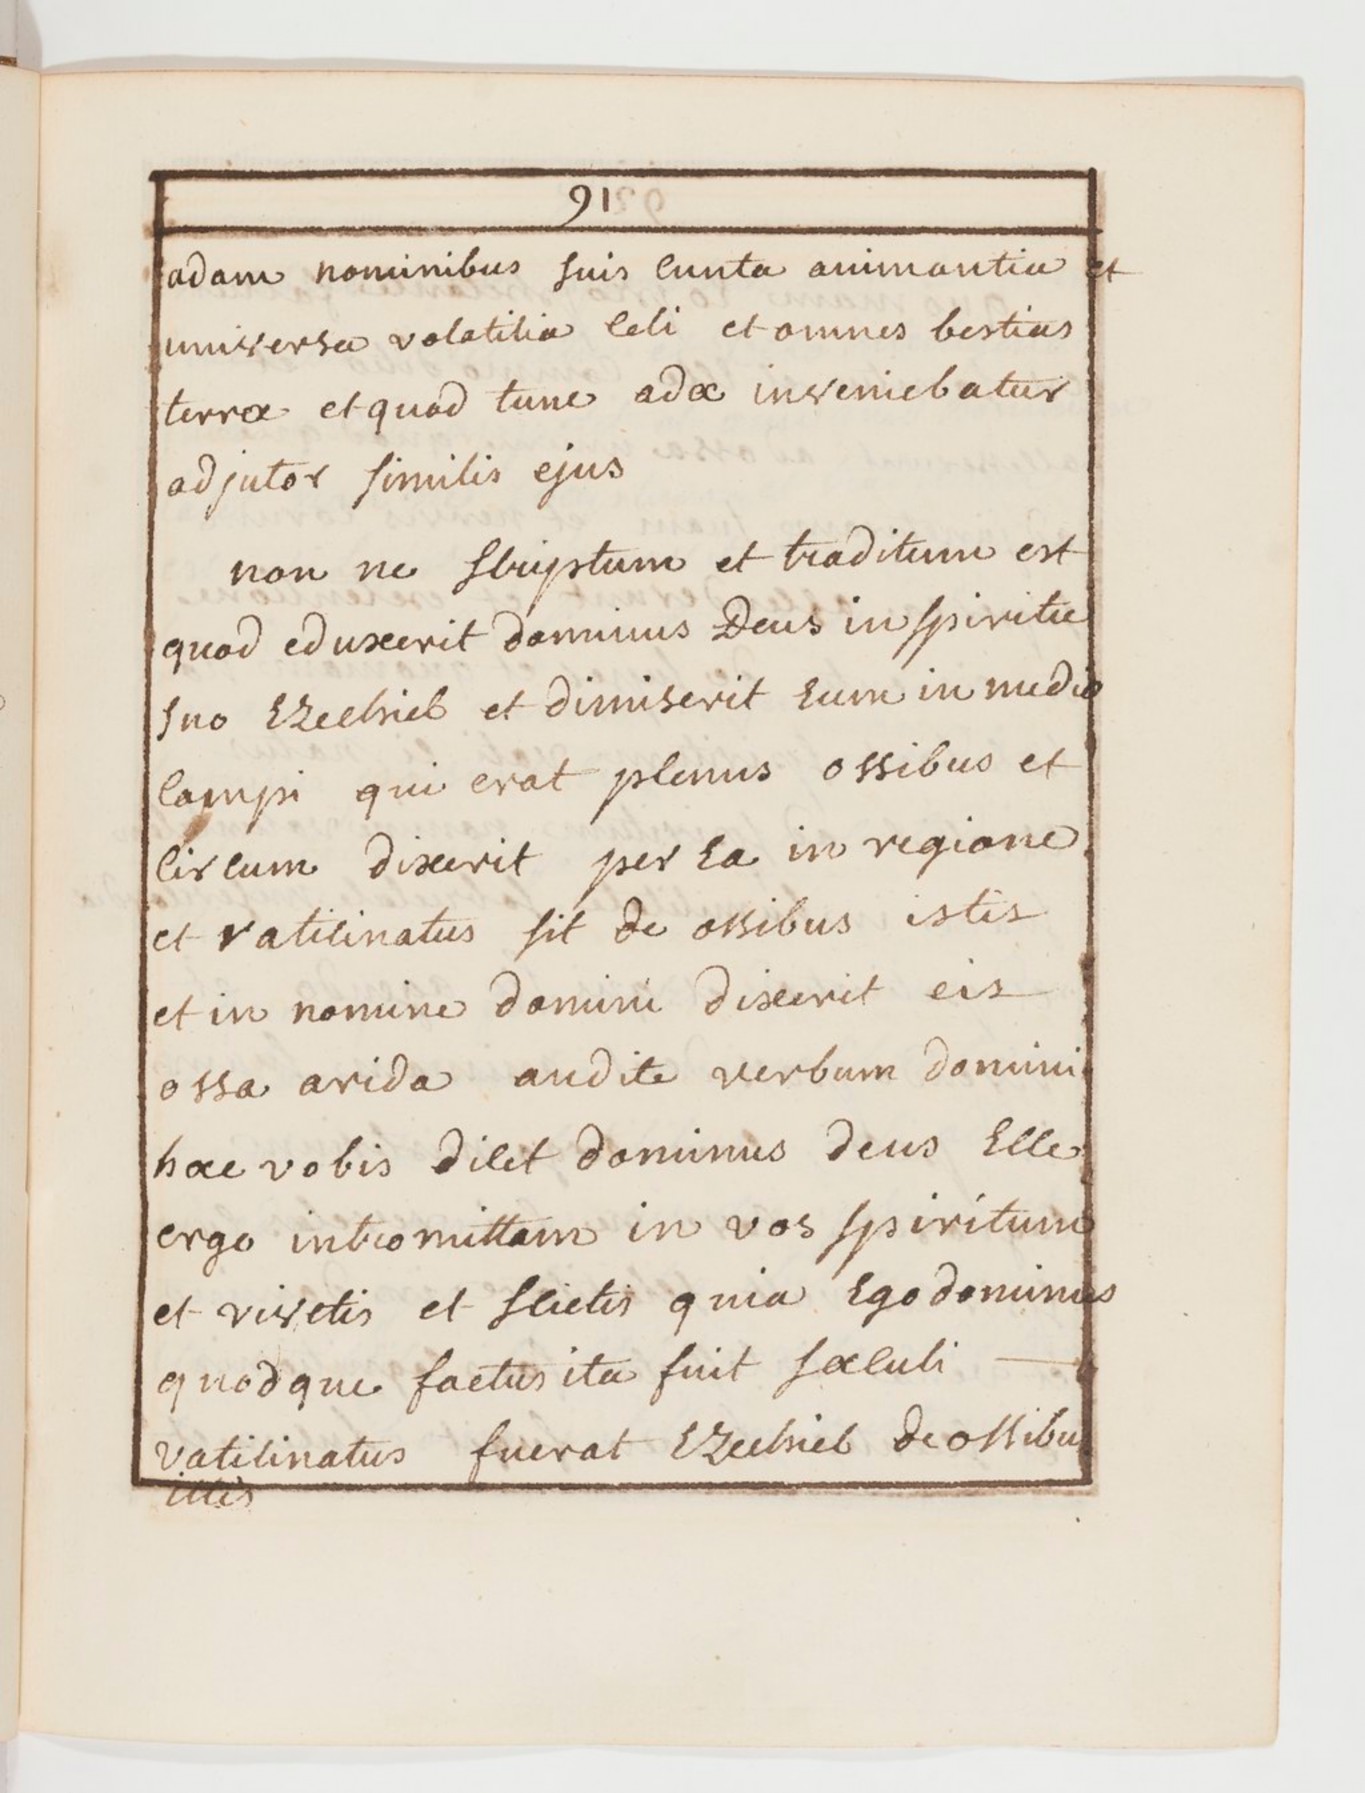 91
adam nominibus suis cunta animantia et
universa volatilia celi et omnes bestias
terræ et quod tunc adæ inveniebatur
adjutor similis ejus
non ne scriptum et traditum est
quod eduxerit dominus Deus in spiritu
suo Ezechiel et dimiserit eum in medio
campi qui erat plenus ossibus et
circum dixerit per ea in regione
et vaticinatus sit de ossibus istis
et in nomine domini dixerit eis
ossa arida audite verbum domini
hæc vobis dicet dominus deus Ecce
ergo intromittam in vos spiritum
et vivetis et scietis quia Ego dominus
quodque factus ita fuit sæculi
vaticinatus fuerat Ezechiel de ossibus
illis